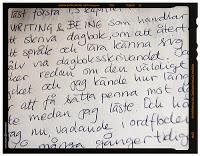 läst första 
WRITING & BEING som handlar
att skriva dagbok, om att återer
språk och lära känna sig
älv via dagboksskrivandet. Ja
ker redan om den väldigt
och jag kände hur läng
att få sätta penna mot d
medan jag läste. Och hä
jag nu vadande i ordfloden
många gånger tidig